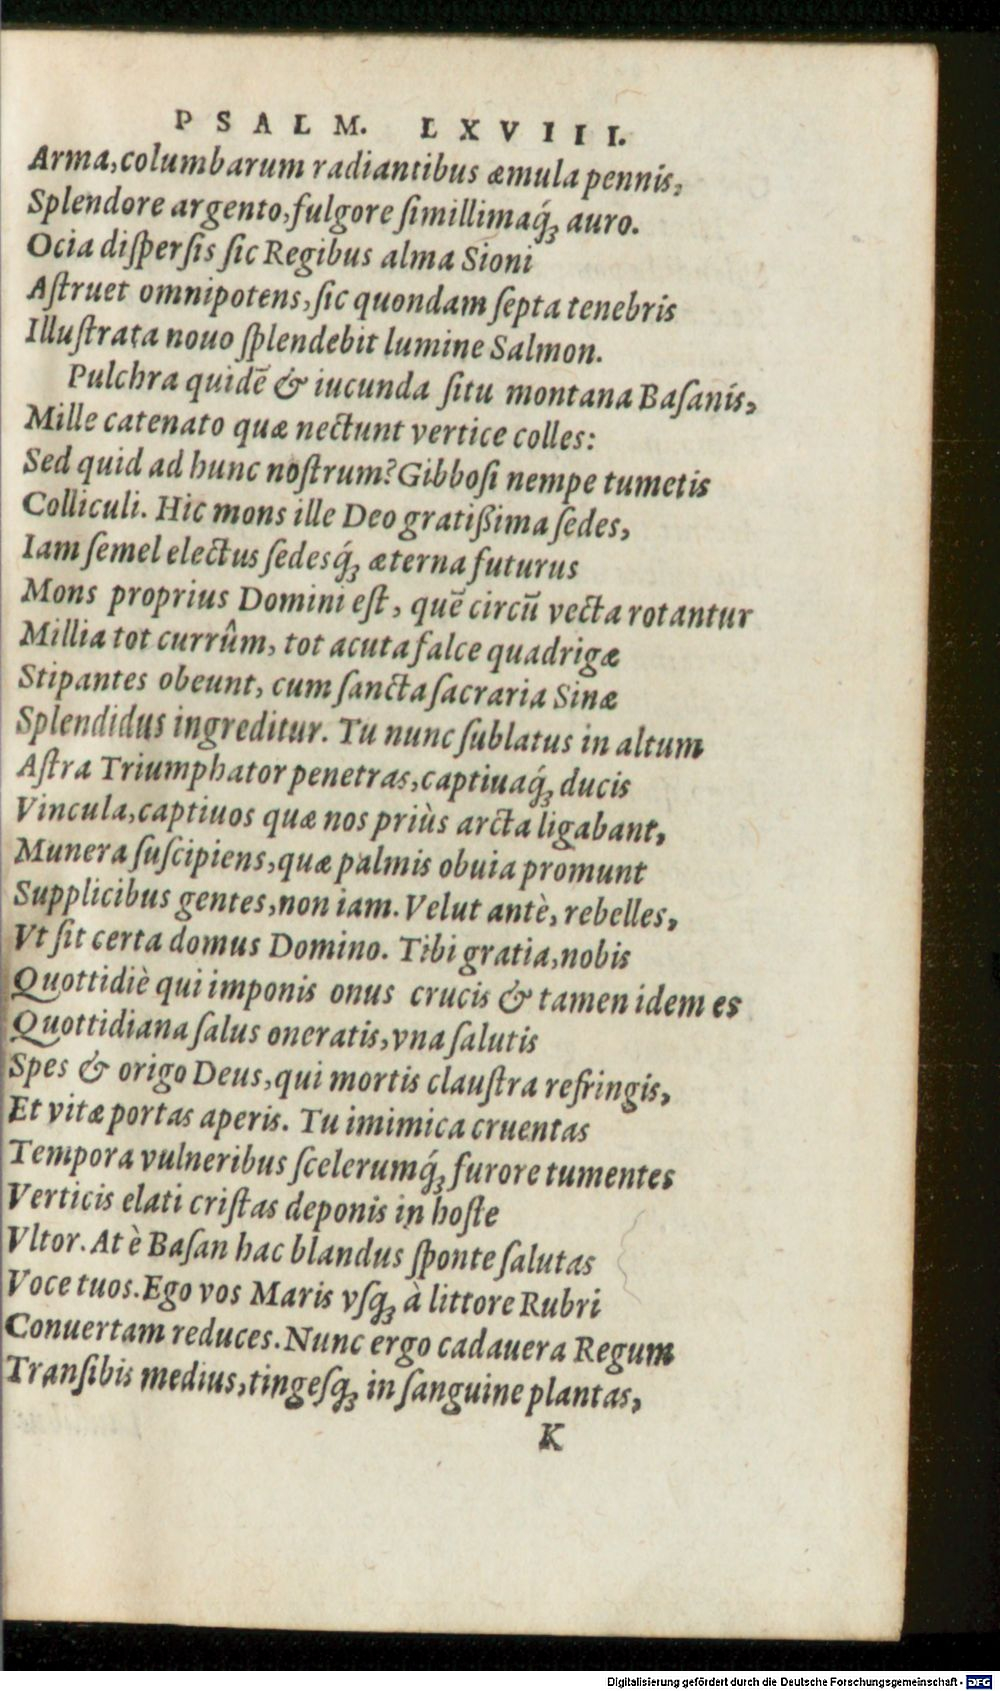 PSALM. LXVIII.
Arma, columbarum radiantibus æmula pennis,
Splendore argento, fulgore ſimillimaq́ꝫ auro.
Ocia diſperſis ſic Regibus alma Sioni
Aſtruet omnipotens, ſic quondam ſepta tenebris
Illuſtrata nouo ſplendebit lumine Salmon.
Pulchra quidē & iucunda ſitu montana Baſanis,
Mille catenato quæ nectunt vertice colles:
Sed quid ad hunc noſtrum? Gibboſi nempe tumetis
Colliculi. Hic mons ille Deo gratißima ſedes,
Iam ſemel electus ſedesq́ꝫ æterna futurus
Mons proprius Domini eſt, quē circū vecta rotantur
Millia tot currûm, tot acuta falce quadrigæ
Stipantes obeunt, cum ſancta ſacraria Sinæ
Splendidus ingreditur. Tu nunc ſublatus in altum
Aſtra Triumphator penetras, captiuaq́ꝫ ducis
Vincula, captiuos quæ nos priùs arcta ligabant,
Munera ſuſcipiens, quæ palmis obuia promunt
Supplicibus gentes, non iam. Velut antè, rebelles,
Vt ſit certa domus Domino. Tibi gratia, nobis
Quottidiè qui imponis onus crucis & tamen idem es
Quottidiana ſalus oneratis, vna ſalutis
Spes & origo Deus, qui mortis clauſtra refringis,
Et vitæ portas aperis. Tu imimica cruentas
Tempora vulneribus ſcelerumq́ꝫ furore tumentes
Verticis elati criſtas deponis in hoſte
Vltor. At è Baſan hac blandus ſponte ſalutas
Voce tuos. Ego vos Maris vſqꝫ à littore Rubri
Conuertam reduces. Nunc ergo cadauera Regum
Tranſibis medius, tingeſqꝫ in ſanguine plantas,
K
Digitalisierung gefördert durch die Deutsche Forschungsgemeinschaft - DFG